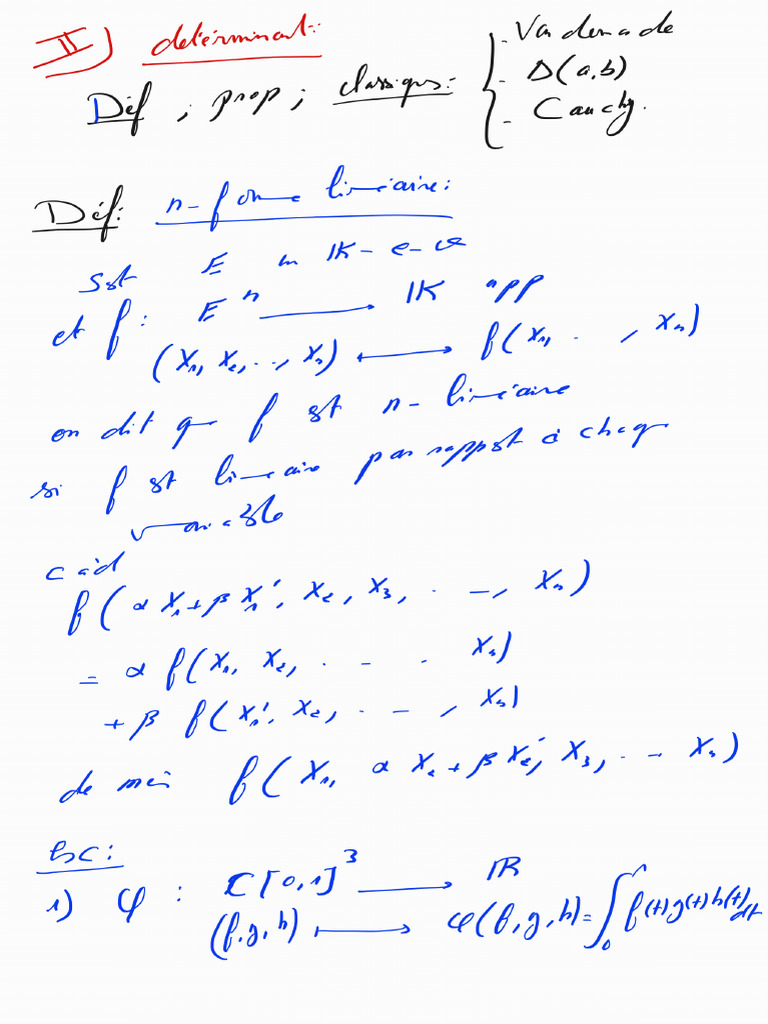 II) determinant:
Déf ; prop ; classiques: { - Vandermonde
- D(a,b)
- Cauchy.
Déf: n-forme linéaire:
Soit E un IK-e-ve
et f : E^n ⟶ IK app
(X₁, X₂, .., Xₙ) ⟼ f(X₁, . . , Xₙ)
on dit que f est n-linéaire
si f est linéaire par rapport à chaque
variable
càd
f(αX₁+βX₁', X₂, X₃, . –, Xₙ)
= α f(X₁, X₂, . – . Xₙ)
+ β f(X₁', X₂, . –, Xₙ)
de mêm f(X₁, αX₂+βX₂', X₃, . – Xₙ)
1) φ : C[0,1]³ ⟶ IR
(f,g,h) ⟼ φ(f,g,h)=∫₀¹ f(t)g(t)h(t)dt